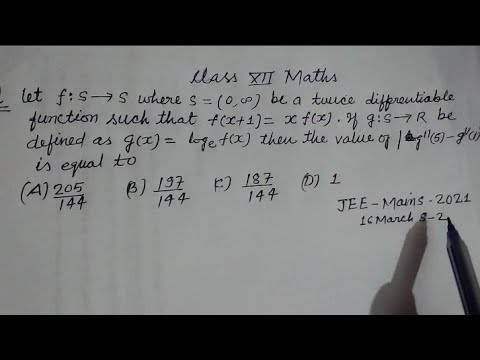 Class XII Maths
Let f: S → S where S = (0, ∞) be a twice differentiable
function such that f(x+1) = x f(x). If g: S → R be
defined as g(x) = loge f(x) then the value of |g''(5) - g''(1)
is equal to
(A) 205/144 (B) 197/144 (C) 187/144 (D) 1
JEE - Mains - 2021
16 March S-2